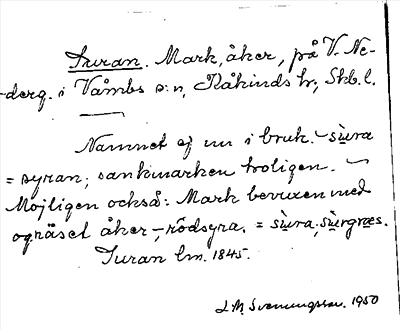 Suran. Mark, åker, på V. Ne-
derg. i Våmbs s:n, Kåkinds hr, Skb. l.
Namnet ej nu i bruk. – sùra
= syran; sankmarken troligen. –
Möjligen också: Mark bevuxen med
ogräset åker-, rödsyra. = sùra, sùrgræs.
Suran lm. 1845.
L. M. Svenungsson. 1950